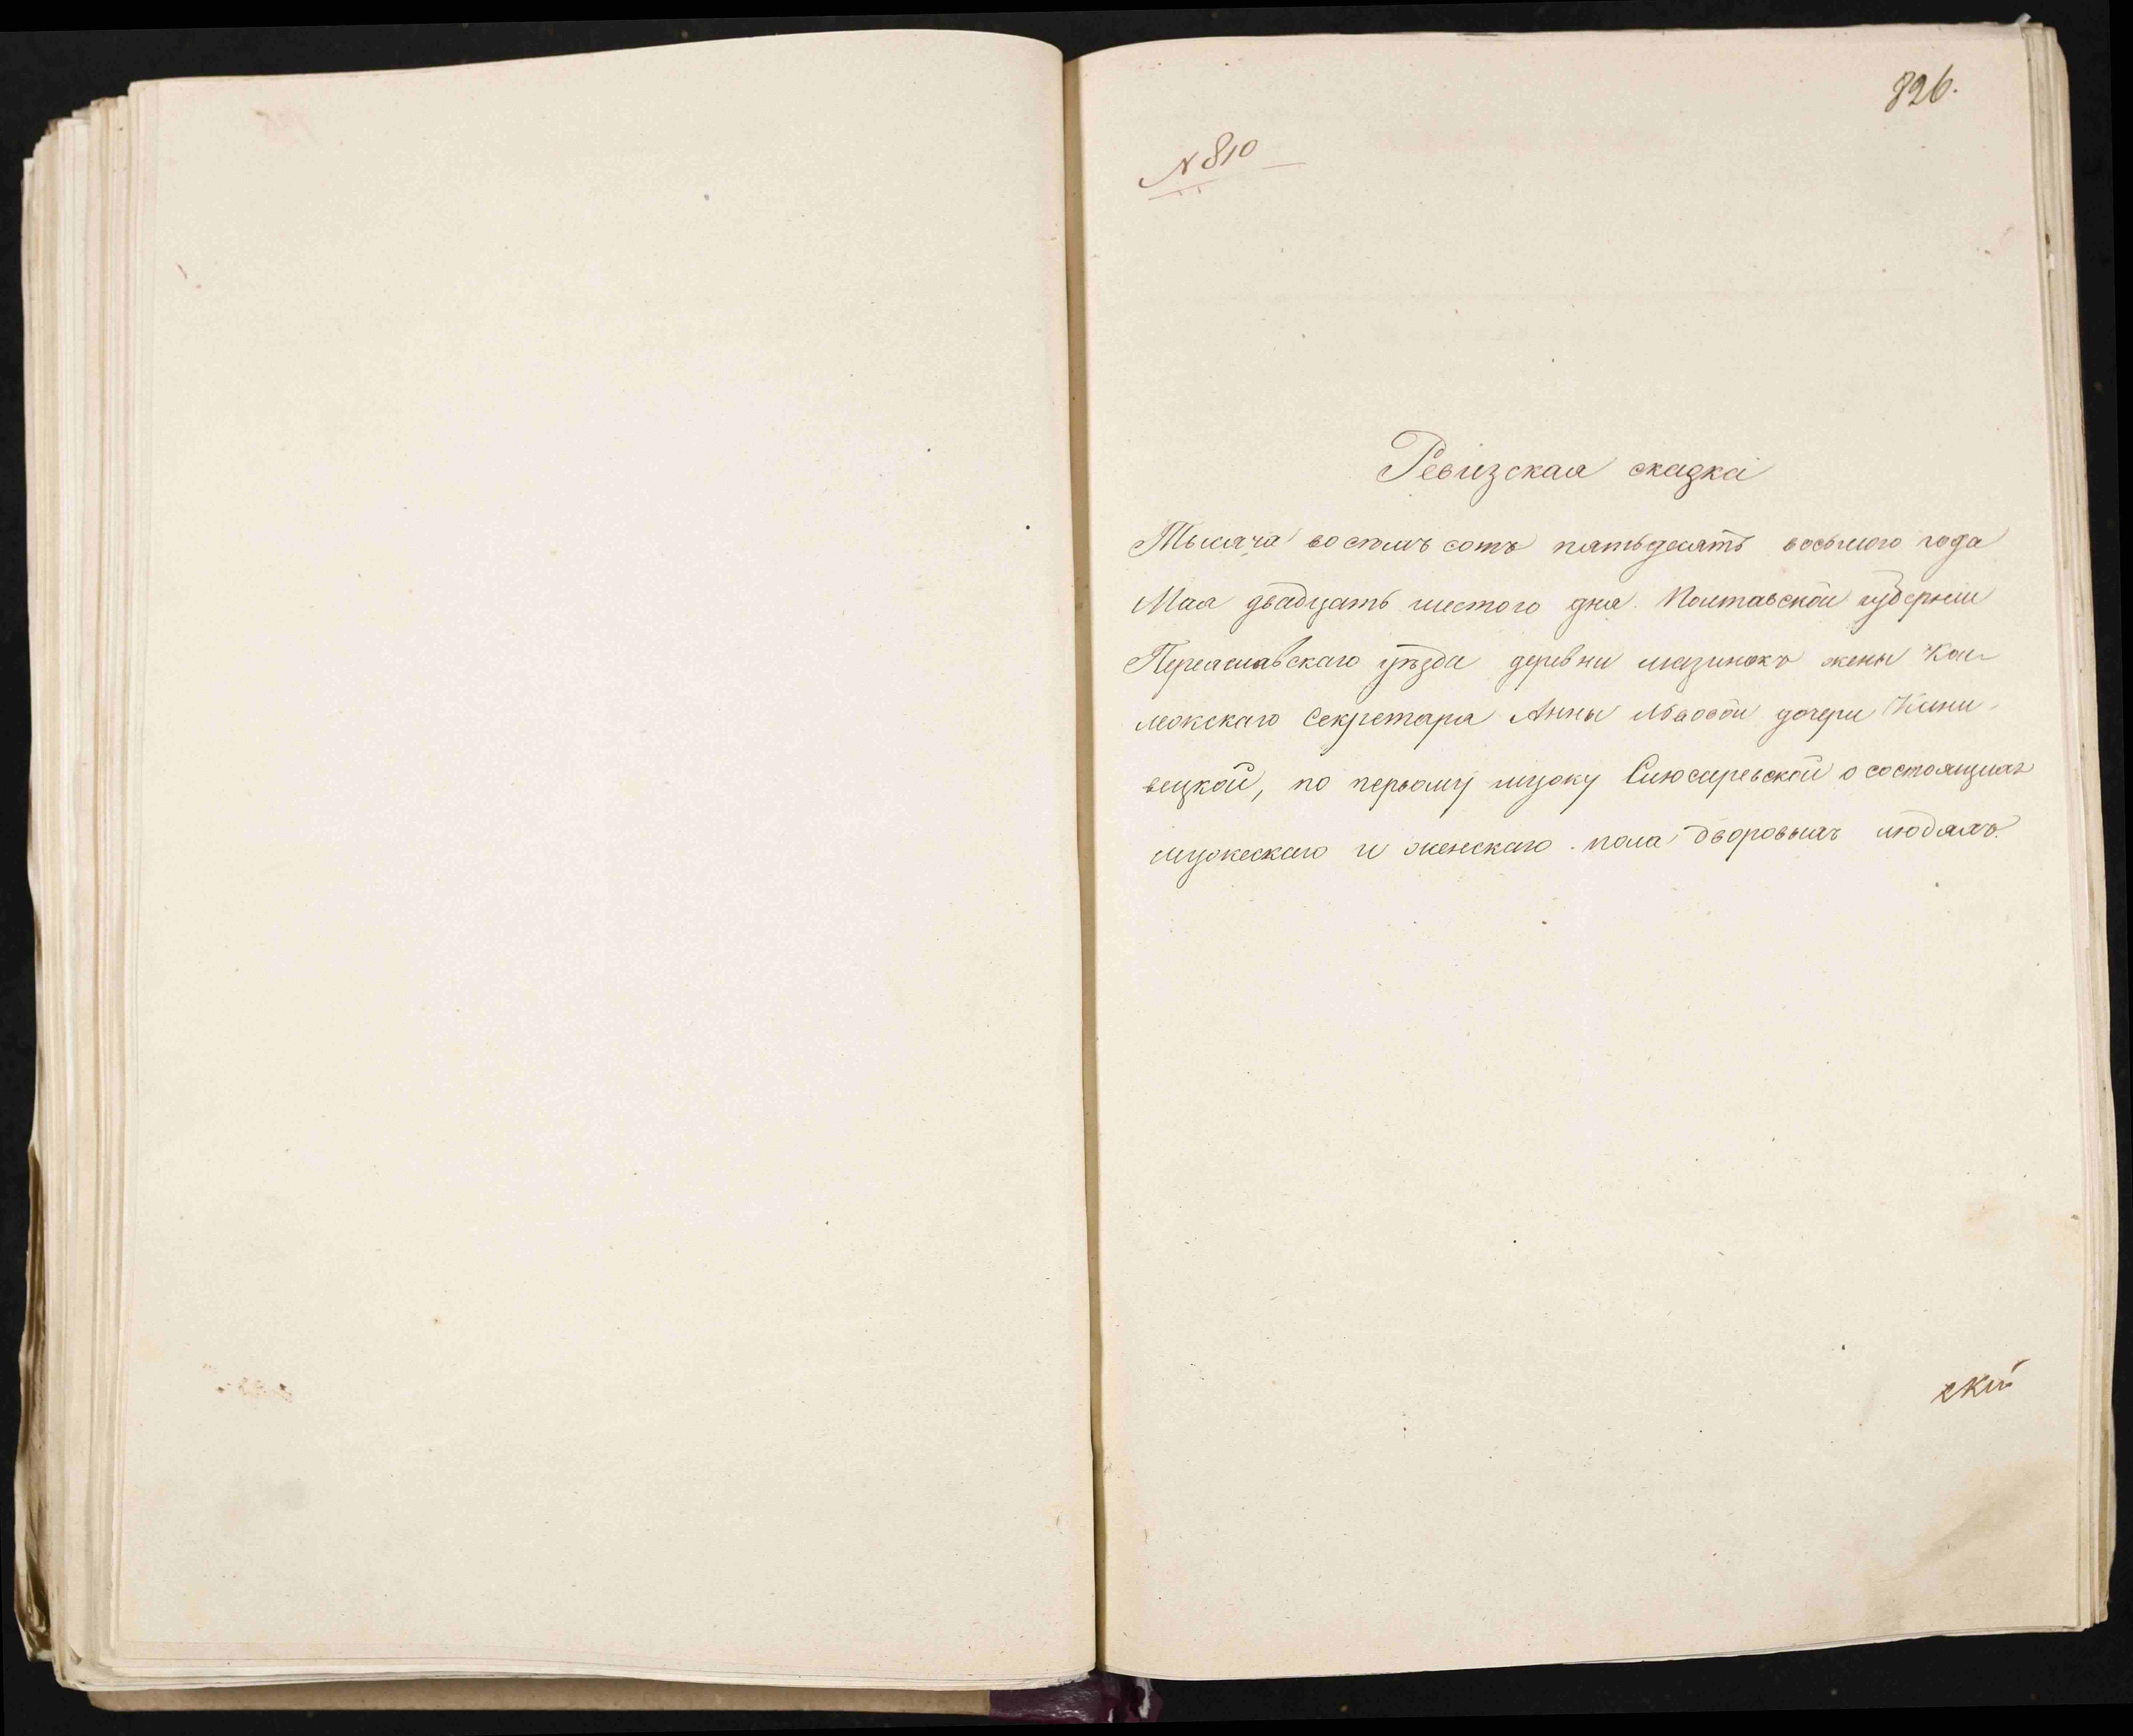 826.
N 810
Ревизская сказка
Тысяча восемь сотъ пятьдесятъ восьмого года
Мая двадцать шестого дня. Полтавской губерніи
Переяславскаго уѣзда деревни мазинокъ жены Кол-
лежскаго Секретаря Анны Львовой дочери
вецкой, по первому мужу Слюсаревской о состоящихъ
мужескаго и женскаго пола дворовыхъ людяхъ.